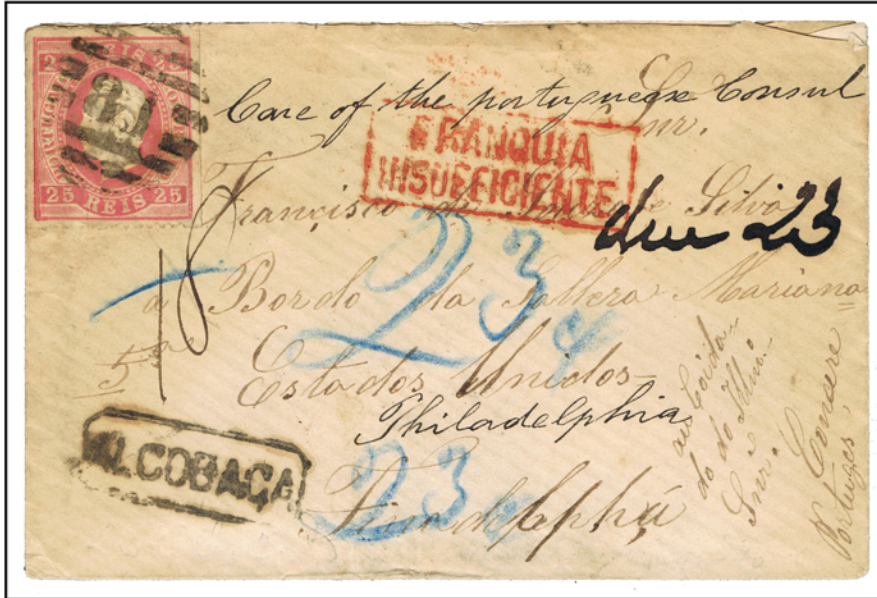 25 REIS 25
81
Care of the portuguese Consul
Snr.
FRANQUIA
INSUFFICIENTE
Francisco de Silva
due 23
18
23
a Bordo da Gallera Mariana
5ª
Estados Unidos
Philadelphia
ALCOBAÇA
23
ao Cuida-
do do
Snr.
Portuges